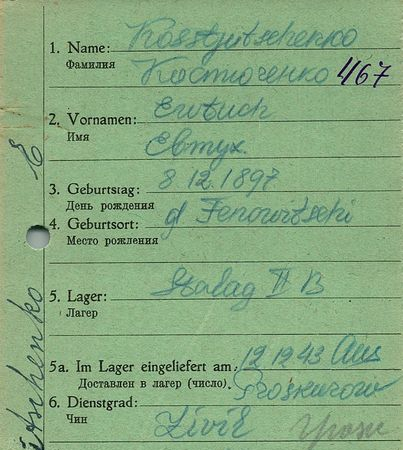 1. Name: Kosstjutschenko
Фамилия Костюченко 467
2. Vornamen: Ewtuch
Имя Евтух.
3. Geburtstag: 8.12.1897
День рождения
4. Geburtsort: d Fenowitschi
Место рожления
5. Lager: Stalag II B
Лагер
5a. Im Lager eingeliefert am: 12 12 43 Aus
Доставлен в лагер (число). Proskurow
6. Dienstgrad: Zivil
Чин
itschenko E